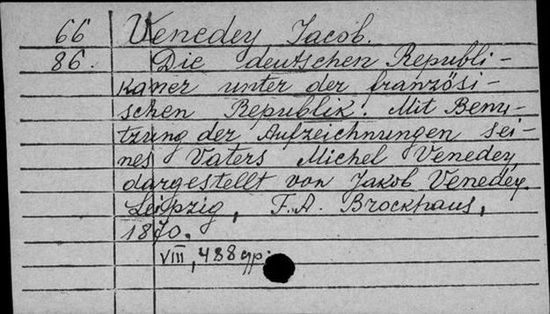 66 Venedey Jacob.
86. Die deutschen Republi-
kaner unter der französi-
schen Republik. Mit Benu-
tzung der Aufzeichnungen sei-
nes Vaters Michel Venedey,
dargestellt von Jakob Venedey.
Leipzig, F.A. Brockhaus,
1870.
VIII, 488